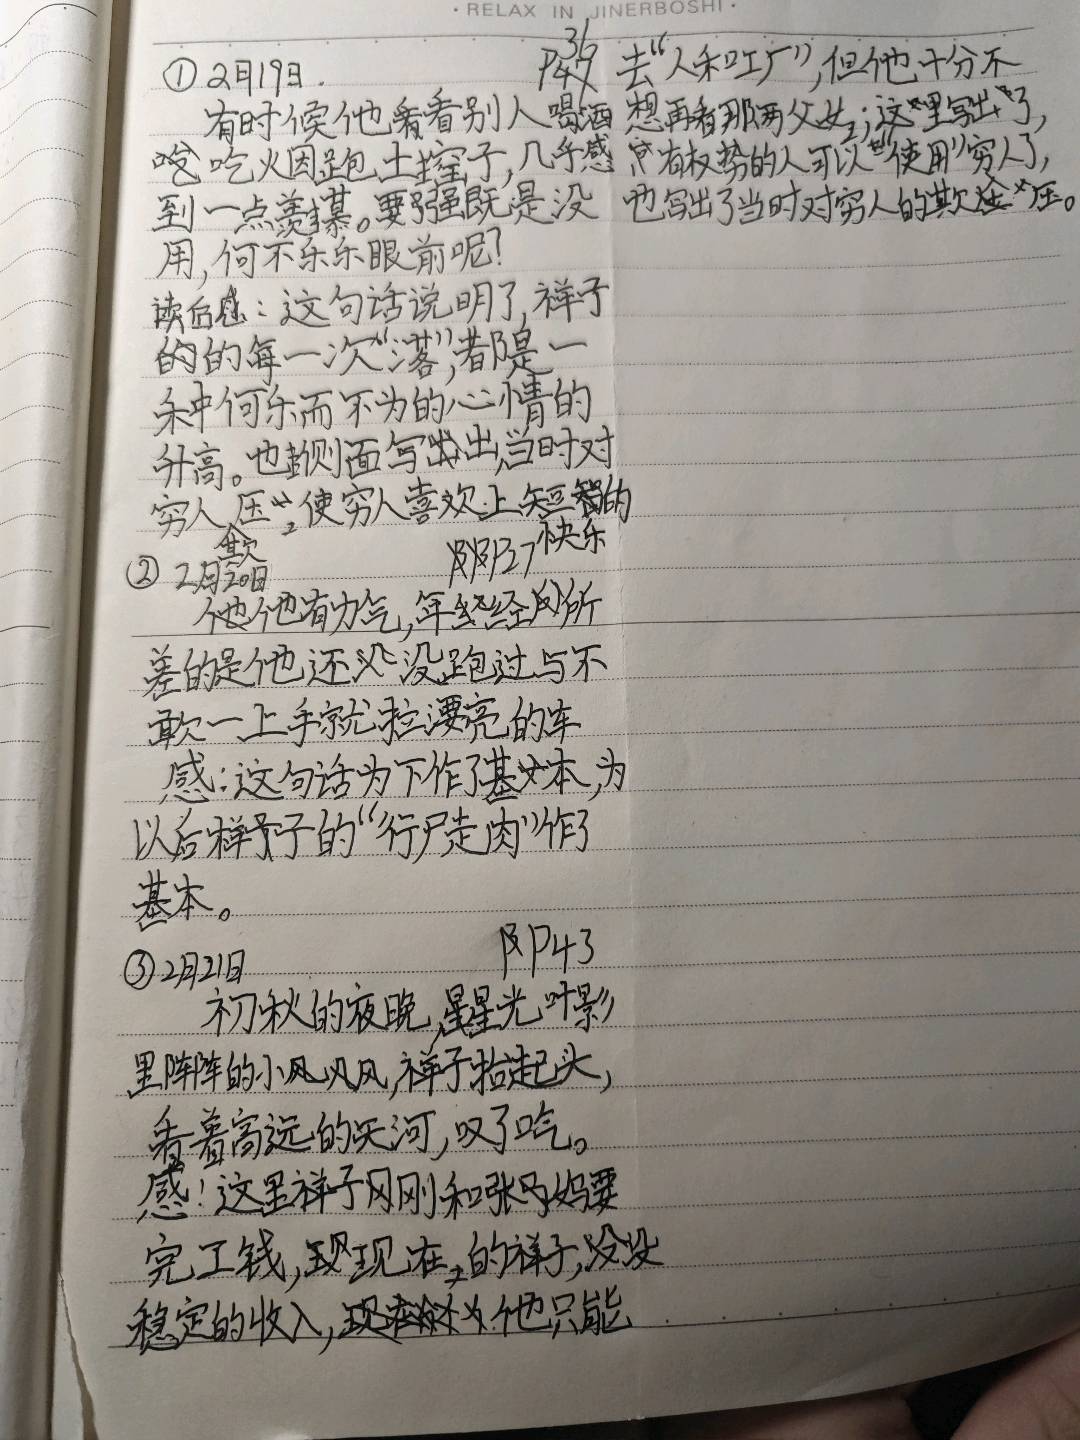 · RELAX IN JINERBOSHI ·
① 2月19日. P36
有时候他看看别人喝酒
吃吃火因跑土控子,几乎感
到一点羡慕。要强既是没
用,何不乐乐眼前呢?
读后感:这句话说明了,祥子
的的每一次“落”,都是一
种何乐而不为的心情的
升高。也侧面写出,当时对
穷人欺压,使穷人喜欢上短暂的
快乐
② 2月20日 P37
他他有力气,年经所
差的是他还没跑过与不
敢一上手就拉漂亮的车
感:这句话为下作了基本,为
以后祥子的“行尸走肉”作了
基本。
③ 2月21日 P43
初秋的夜晚,星星光叶影
里阵阵的小风,祥子抬起头,
看着高远的天河,叹了口气。
感!这里祥子刚刚和张妈要
完工钱,现在的祥子,没没
稳定的收入,他只能
去“人和工厂”,但他十分不
想再看那两父女;这里写出了,
有权势的人可以“使用”穷人了,
也写出了当时对穷人的欺压。